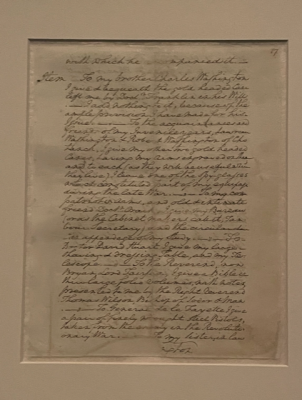 with which he accompanied it —
Item To my brother Charles Washington
I give & bequeath the gold headed Cane
left me by Doctr Franklin in his Will.
I add nothing to it, because of the
ample provision I have made for his
Issue. — To the acquaintances and
friends of my Juvenile years, Lawrence
Washington & Robert Washington of
Chotanck, I give my other two gold headed
Canes, having my Arms engraved on them;
and to each (as they will be useful where
they live) I leave one of the Spy-glasses
which constituted part of my equipage
during the late War. — To my com-
patriot in arms, and old & intimate
friend Doctr Craik, I give my Bureau
(or as the Cabinet makers call it, Tam-
bour Secretary) and the circular chair —
an appendage of my Study. — To
Doctor David Stuart I give my large
shaving & dressing Table, and my Te-
lescope. — To the Reverend, now
Bryan, Lord Fairfax, I give a Bible in
three large folio volumes, with notes,
presented to me by the Right Reverend
Thomas Wilson, Bishop of Sodor & Man.
— To General de la Fayette I give
a pair of finely wrought steel Pistols,
taken from the enemy in the Revolutio-
nary War. — To my Sisters in law